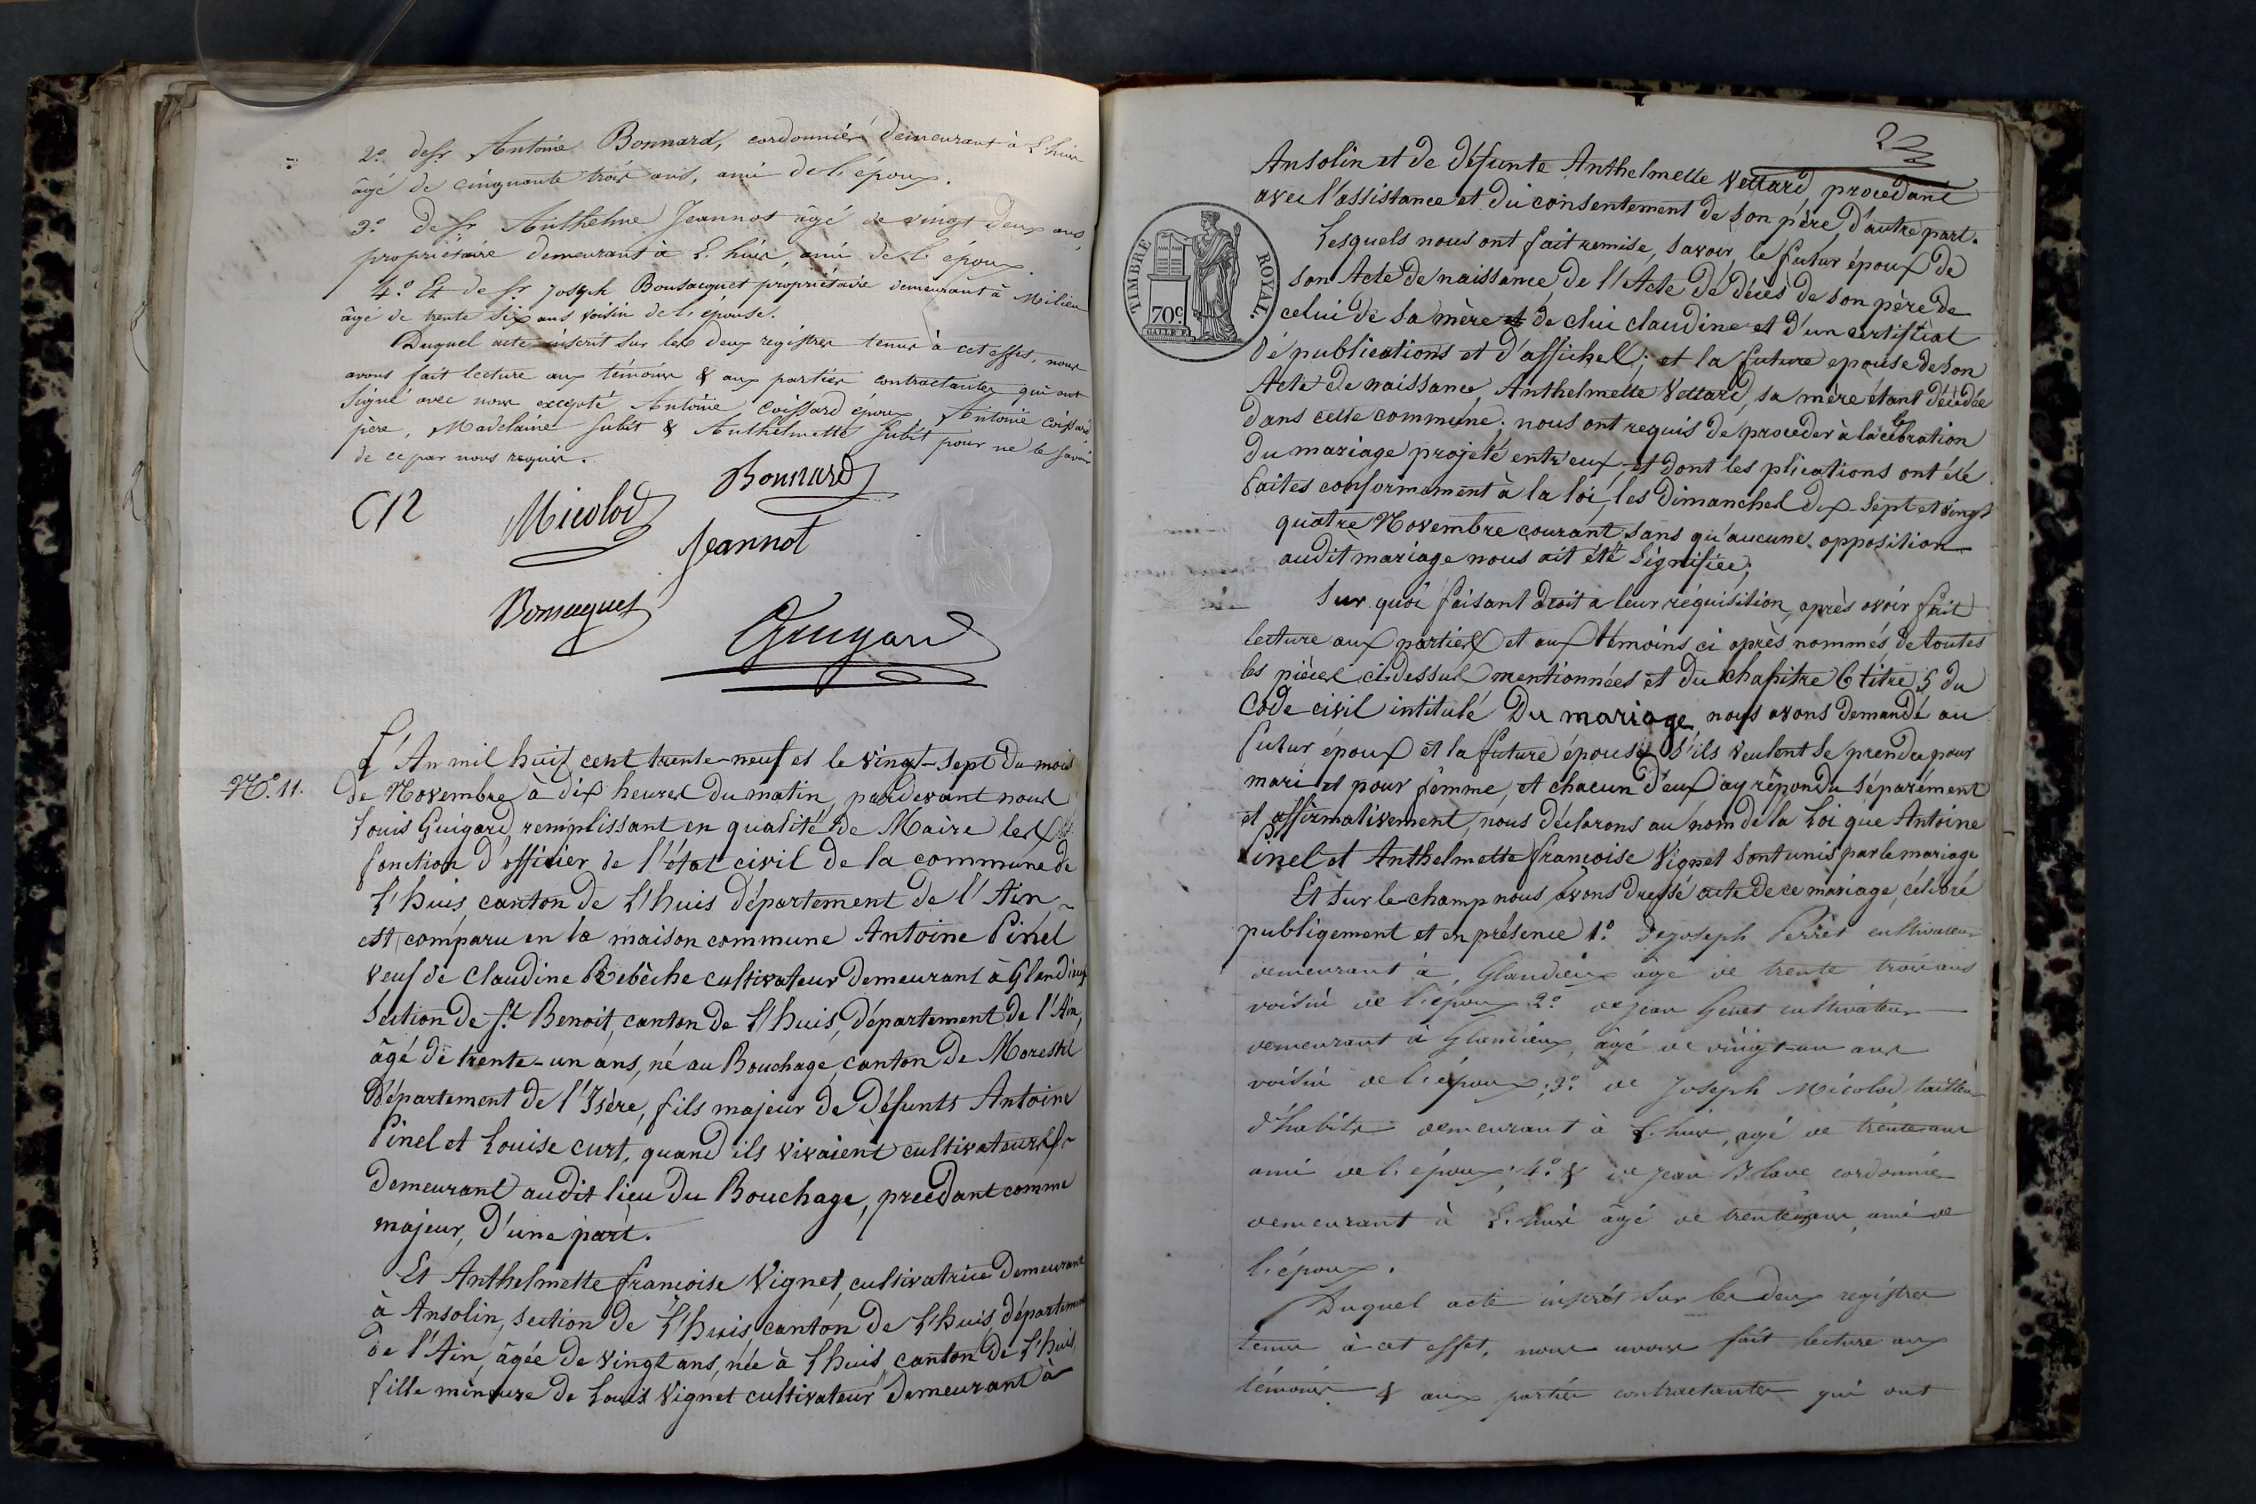 2º de Sr Antoine Bonnard, cordonnier demeurant à L'huis
âgé de cinquante trois ans, ami de l'époux.
3º de Sr Anthelme Jeannot âgé de vingt deux ans,
propriétaire demeurant à L'huis, ami de l'époux.
4º Et de Sr Joseph Bonsacquet propriétaire demeurant à Milieu
âgé de trente six ans voisin de l'épouse.
Duquel acte inscrit sur les deux régistres tenus à cet effet, nous
avons fait lecture aux témoins & aux parties contractantes qui ont
signé avec nous excepté Antoine Coissard époux, Antoine Coissard
père, Madelaine Subit & Anthelmette Subit pour ne le savoir
de ce par nous requis.
Micolod
Bonnard
Jeannot
Bonsacquet
Guigard
Nº. 11.
L'An mil huit cent trente-neuf et le vingt-sept du mois
de Novembre à dix heures du matin, pardevant nous
Louis Guigard remplissant en qualité de Maire les
fonction d'officier de l'état civil de la commune de
L'huis, canton de L'huis département de l'Ain
est comparu en la maison commune Antoine Pinel
veuf de Claudine Rebêche cultivateur demeurant à Glandieux
section de St Benoit, canton de L'huis, département de l'Ain,
âgé de trente-un ans, né au Bouchage, canton de Morestel
département de l'Isère, fils majeur de défunts Antoine
Pinel et Louise Curt, quand ils vivaient cultivateurs
demeurant audit lieu du Bouchage, procédant comme
majeur, d'une part.
Et Anthelmette françoise Vignet, cultivatrice demeurant
à Ansolin, section de L'huis, canton de L'huis, département
de l'Ain, âgée de vingt ans, née à L'huis, canton de L'huis,
fille mineure de Louis Vignet cultivateur demeurant à
TIMBRE ROYAL
70c
Ansolin et de défunte Anthelmette Vettard, procédant
avec l'assistance et du consentement de son père, d'autre part.
Lesquels nous ont fait remise, savoir, le futur époux de
son Acte de naissance de l'Acte de décès de son père de
celui de sa mère et de clui claudine et d'un certificat
de publications et d'affiches; et la future épouse de son
Acte de naissance, Anthelmette Vettard, sa mère étant décédée
dans cette commune; nous ont requis de procéder à la célébration
du mariage projeté entr'eux, et dont les plications ont été
faites conformément à la loi, les dimanches dix-sept et vingt
quatre Novembre courant sans qu'aucune opposition
audit mariage nous ait été signifiée;
Sur quoi faisant droit à leur réquisition, après avoir fait
lecture aux parties et aux témoins ci après nommés de toutes
les pièces ci-dessus mentionnées et du chapitre 6 titre 5 du
Code civil intitulé Du mariage nous avons demandé au
futur époux et la future épouse s'ils veulent se prendre pour
mari et pour femme, et chacun d'eux ay répondu séparément
et affirmativement, nous déclarons au nom de la Loi que Antoine
Pinel et Anthelmette françoise Vignet sont unis par le mariage
Et sur le champ nous avons dressé acte de ce mariage, célébré
publiqement et en présence 1º. de Joseph Perret cultivateur
demeurant à Glandieux âgé de trente trois ans
voisin de l'époux 2º. de Jean Genet cultivateur
demeurant à Glandieux, âgé de vingt-un ans
voisin de l'époux; 3º. de Joseph Micolod, tailleur
d'habits demeurant à L'huis, âgé de trente ans
ami de l'époux; 4º. & de Jean Blanc cordonnier
demeurant à L'huis âgé de ami de
l'époux.
Duquel acte inscrit sur les deux régistres
tenus à cet effet, nous avons fait lecture aux
témoins & aux parties contractantes qui ont